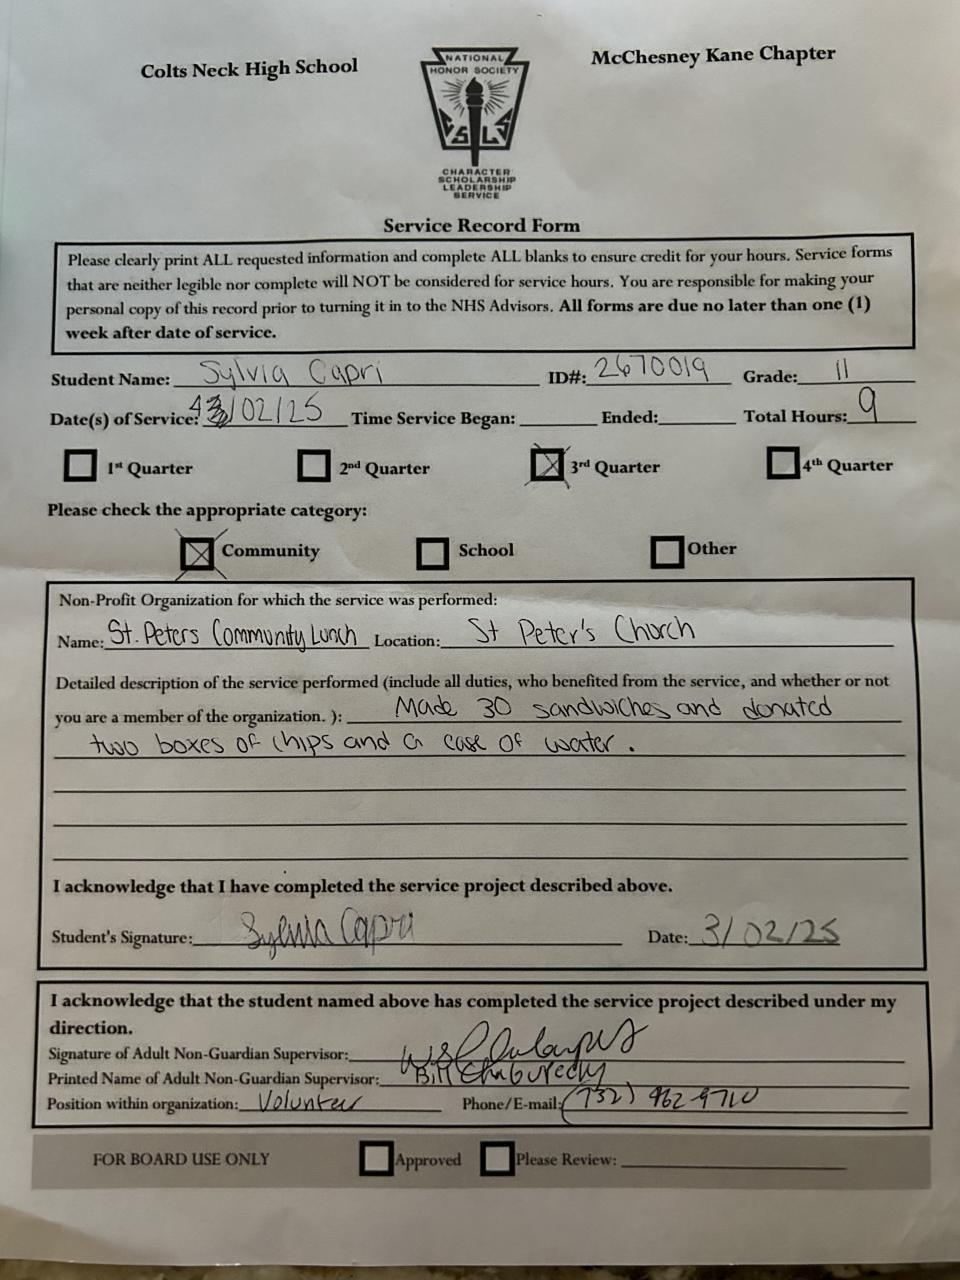 Colts Neck High School
McChesney Kane Chapter
NATIONAL
HONOR SOCIETY
CSLS
CHARACTER
SCHOLARSHIP
LEADERSHIP
SERVICE
Service Record Form
Please clearly print ALL requested information and complete ALL blanks to ensure credit for your hours. Service forms
that are neither legible nor complete will NOT be considered for service hours. You are responsible for making your
personal copy of this record prior to turning it in to the NHS Advisors. All forms are due no later than one (1)
week after date of service.
Student Name: Sylvia Capri ID#: 2670019 Grade: 11
Date(s) of Service: /02/25 Time Service Began: Ended: Total Hours: 9
1st Quarter 2nd Quarter 3rd Quarter 4th Quarter
Please check the appropriate category:
Community School Other
Non-Profit Organization for which the service was performed:
Name: St. Peters Community Lunch Location: St Peter's Church
Detailed description of the service performed (include all duties, who benefited from the service, and whether or not
you are a member of the organization. ): Made 30 sandwiches and donated
two boxes of chips and a case of water.
I acknowledge that I have completed the service project described above.
Student's Signature: Sylvia Capri Date: 3/02/25
I acknowledge that the student named above has completed the service project described under my
direction.
Signature of Adult Non-Guardian Supervisor:
Printed Name of Adult Non-Guardian Supervisor: Bill
Position within organization: Volunteer Phone/E-mail: (732) 962-9710
FOR BOARD USE ONLY Approved Please Review: